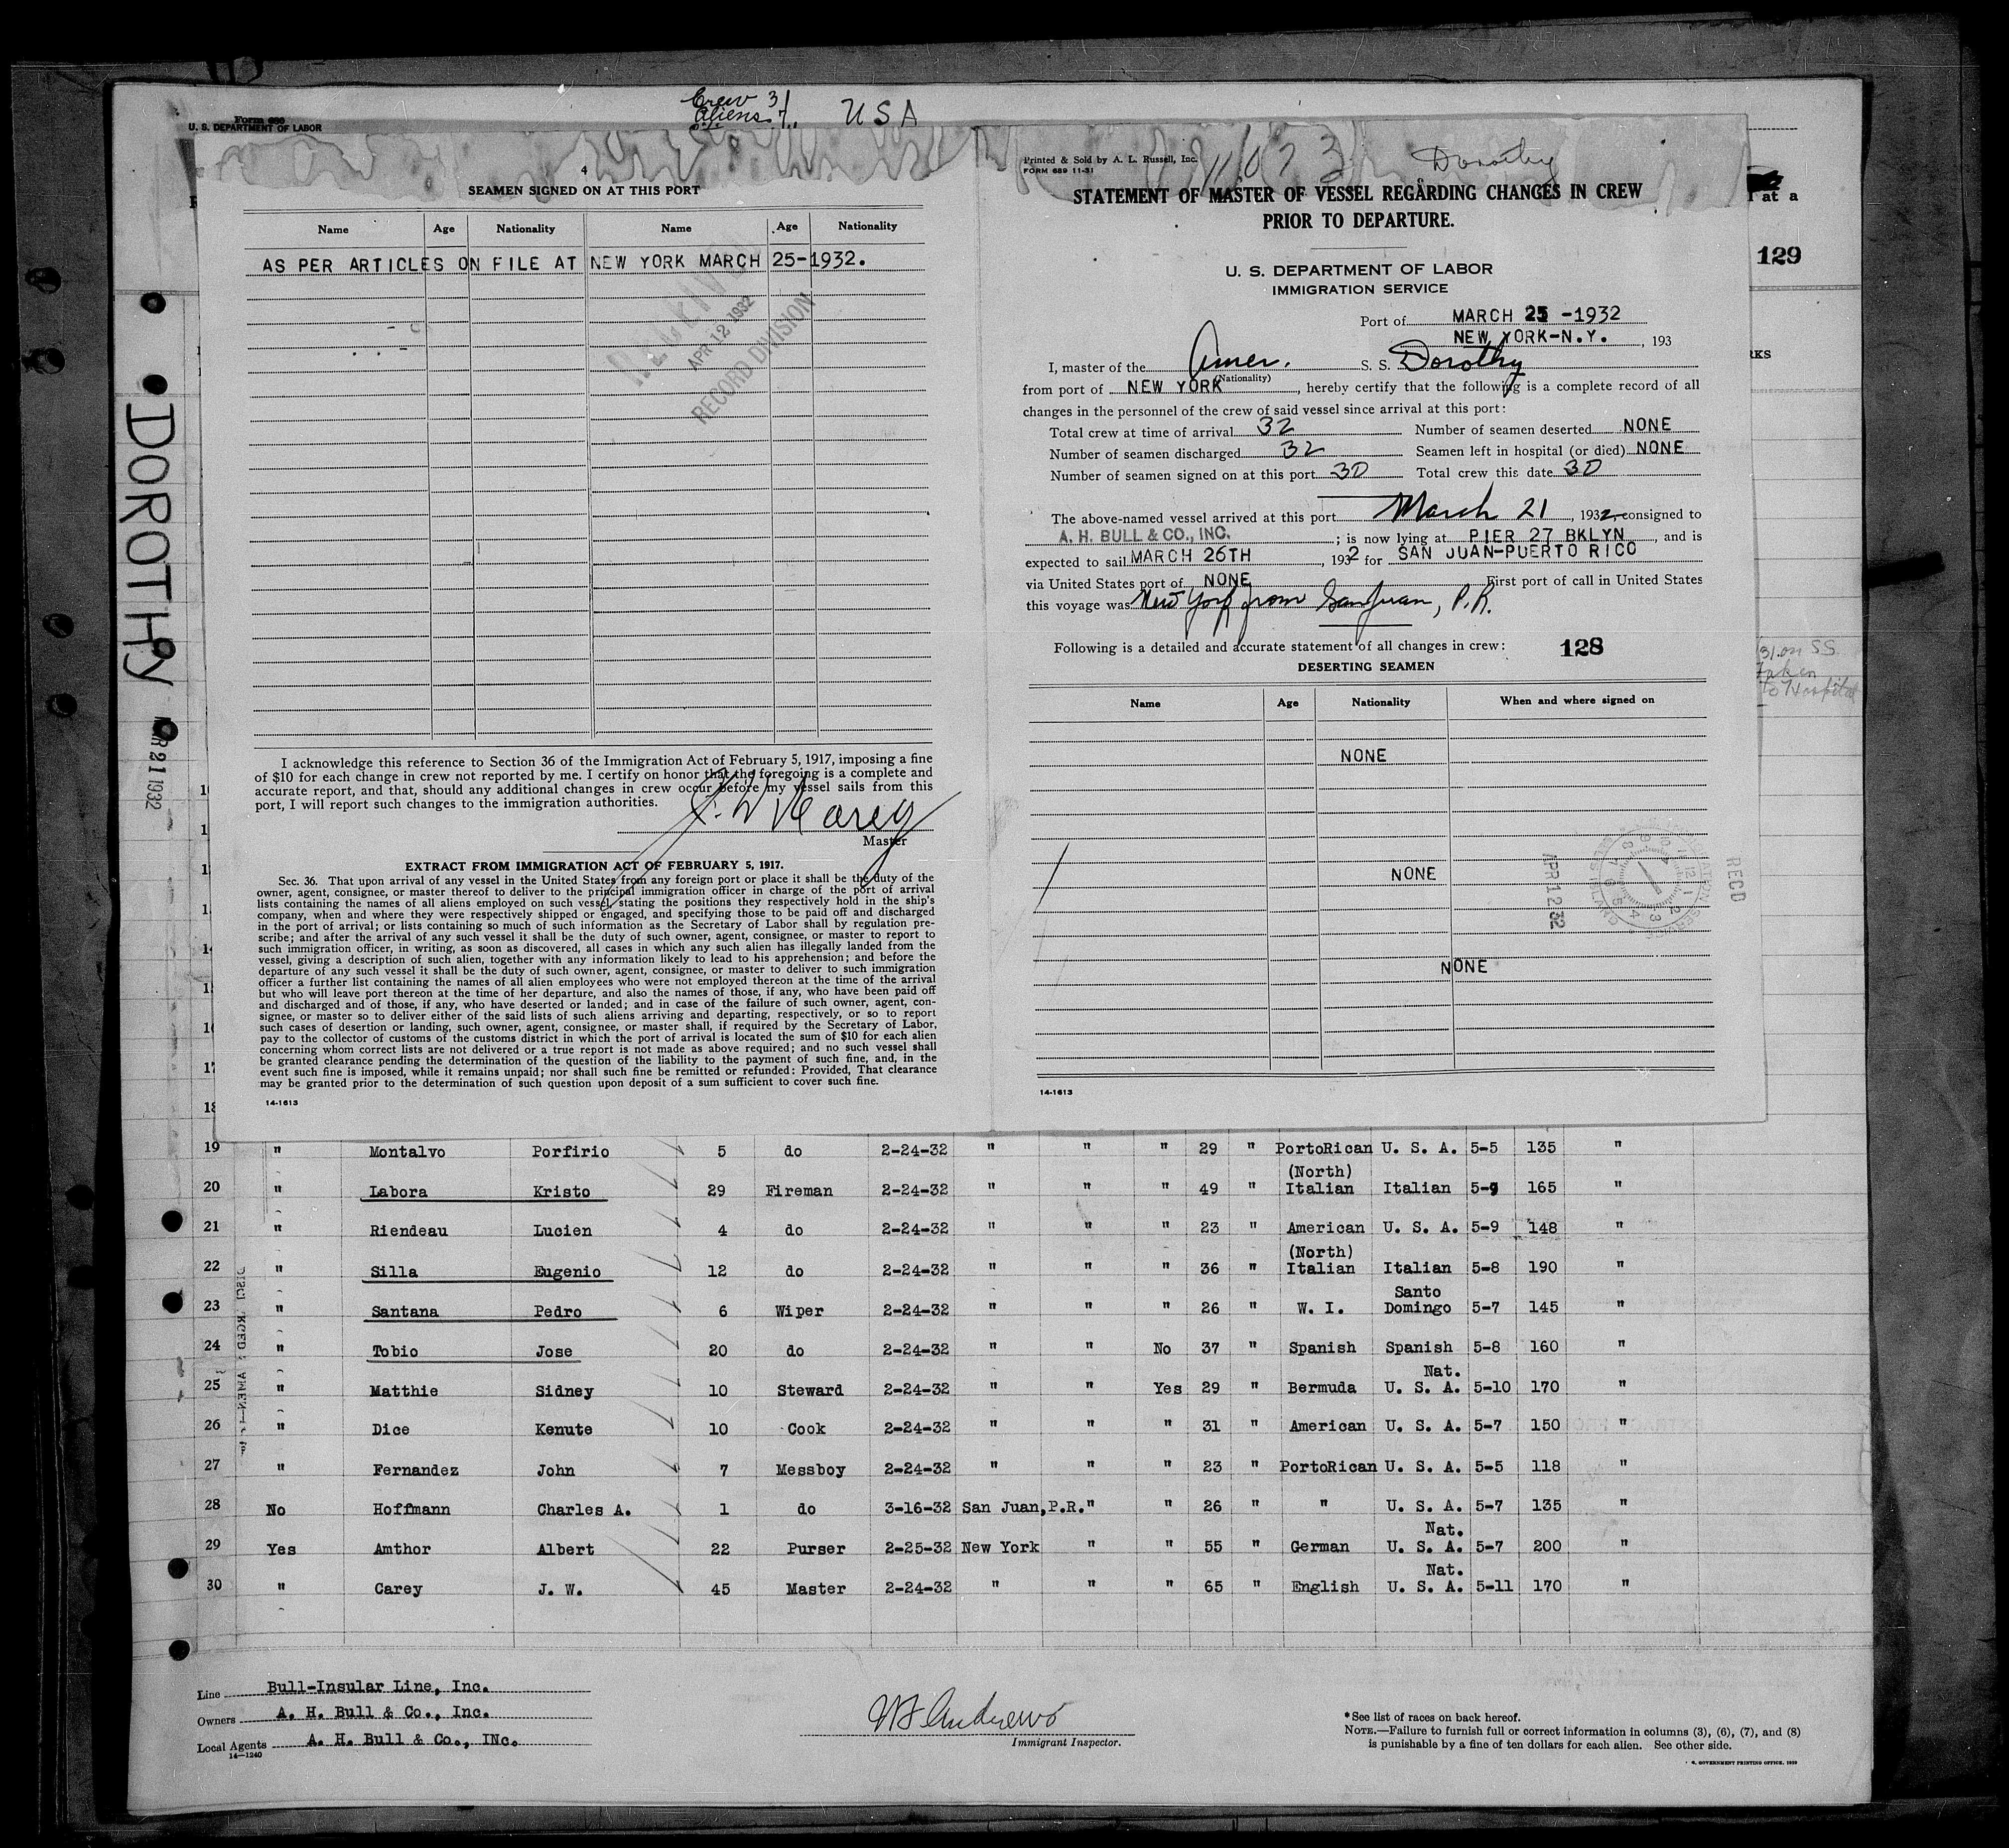 Crew 31
Aliens 7.
USA
Form 680
U. S. DEPARTMENT OF LABOR
4
SEAMEN SIGNED ON AT THIS PORT
Name Age Nationality Name Age Nationality
AS PER ARTICLES ON FILE AT NEW YORK MARCH 25-1932.
RECEIVED
APR 12 1932
RECORD DIVISION
I acknowledge this reference to Section 36 of the Immigration Act of February 5, 1917, imposing a fine
of $10 for each change in crew not reported by me. I certify on honor that the foregoing is a complete and
accurate report, and that, should any additional changes in crew occur before my vessel sails from this
port, I will report such changes to the immigration authorities.
J. W. Carey
Master
EXTRACT FROM IMMIGRATION ACT OF FEBRUARY 5, 1917.
Sec. 36. That upon arrival of any vessel in the United States from any foreign port or place it shall be the duty of the
owner, agent, consignee, or master thereof to deliver to the principal immigration officer in charge of the port of arrival
lists containing the names of all aliens employed on such vessel, stating the positions they respectively hold in the ship's
company, when and where they were respectively shipped or engaged, and specifying those to be paid off and discharged
in the port of arrival; or lists containing so much of such information as the Secretary of Labor shall by regulation pre-
scribe; and after the arrival of any such vessel it shall be the duty of such owner, agent, consignee, or master to report to
such immigration officer, in writing, as soon as discovered, all cases in which any such alien has illegally landed from the
vessel, giving a description of such alien, together with any information likely to lead to his apprehension; and before the
departure of any such vessel it shall be the duty of such owner, agent, consignee, or master to deliver to such immigration
officer a further list containing the names of all alien employees who were not employed thereon at the time of the arrival
but who will leave port thereon at the time of her departure, and also the names of those, if any, who have been paid off
and discharged and of those, if any, who have deserted or landed; and in case of the failure of such owner, agent, con-
signee, or master so to deliver either of the said lists of such aliens arriving and departing, respectively, or so to report
such cases of desertion or landing, such owner, agent, consignee, or master shall, if required by the Secretary of Labor,
pay to the collector of customs of the customs district in which the port of arrival is located the sum of $10 for each alien
concerning whom correct lists are not delivered or a true report is not made as above required; and no such vessel shall
be granted clearance pending the determination of the question of the liability to the payment of such fine, and, in the
event such fine is imposed, while it remains unpaid; nor shall such fine be remitted or refunded: Provided, That clearance
may be granted prior to the determination of such question upon deposit of a sum sufficient to cover such fine.
14-1613
Printed & Sold by A. L. Russell, Inc.
FORM 689 11-31
11073
Dorothy
STATEMENT OF MASTER OF VESSEL REGARDING CHANGES IN CREW
PRIOR TO DEPARTURE.
U. S. DEPARTMENT OF LABOR
IMMIGRATION SERVICE
Port of MARCH 25 -1932
NEW YORK-N.Y. , 193
I, master of the Amer. S. S. Dorothy
(Nationality)
from port of NEW YORK , hereby certify that the following is a complete record of all
changes in the personnel of the crew of said vessel since arrival at this port:
Total crew at time of arrival 32 Number of seamen deserted NONE
Number of seamen discharged 32 Seamen left in hospital (or died) NONE
Number of seamen signed on at this port 30 Total crew this date 30
The above-named vessel arrived at this port March 21 , 1932, consigned to
A. H. BULL & CO., INC. ; is now lying at PIER 27 BKLYN , and is
expected to sail MARCH 26TH , 1932 for SAN JUAN-PUERTO RICO
via United States port of NONE First port of call in United States
this voyage was New York from San Juan, P.R.
Following is a detailed and accurate statement of all changes in crew: 128
DESERTING SEAMEN
Name Age Nationality When and where signed on
NONE
NONE
NONE
RECD
APR 12 32
14-1613
at a
129
RKS
31. on SS.
Taken
To Hospital
DOROTHY
MAR 21 1932
18
19 " Montalvo Porfirio 5 do 2-24-32 " " " 29 " PortoRican U. S. A. 5-5 135 "
20 " Labora Kristo 29 Fireman 2-24-32 " " " 49 " (North) Italian Italian 5-9 165 "
21 " Riendeau Lucien 4 do 2-24-32 " " " 23 " American U. S. A. 5-9 148 "
22 " Silla Eugenio 12 do 2-24-32 " " " 36 " (North) Italian Italian 5-8 190 "
23 " Santana Pedro 6 Wiper 2-24-32 " " " 26 " W. I. Santo Domingo 5-7 145 "
24 " Tobio Jose 20 do 2-24-32 " " No 37 " Spanish Spanish 5-8 160 "
25 " Matthie Sidney 10 Steward 2-24-32 " " Yes 29 " Bermuda Nat. U. S. A. 5-10 170 "
26 " Dice Kenute 10 Cook 2-24-32 " " " 31 " American U. S. A. 5-7 150 "
27 " Fernandez John 7 Messboy 2-24-32 " " " 23 " PortoRican U. S. A. 5-5 118 "
28 No Hoffmann Charles A. 1 do 3-16-32 San Juan,P.R. " " 26 " " U. S. A. 5-7 135 "
29 Yes Amthor Albert 22 Purser 2-25-32 New York " " 55 " German Nat. U. S. A. 5-7 200 "
30 " Carey J. W. 45 Master 2-24-32 " " " 65 " English Nat. U. S. A. 5-11 170 "
Line Bull-Insular Line, Inc.
Owners A. H. Bull & Co., Inc.
Local Agents A. H. Bull & Co., INc.
14-1240
Andrews
Immigrant Inspector.
* See list of races on back hereof.
NOTE.—Failure to furnish full or correct information in columns (3), (6), (7), and (8)
is punishable by a fine of ten dollars for each alien. See other side.